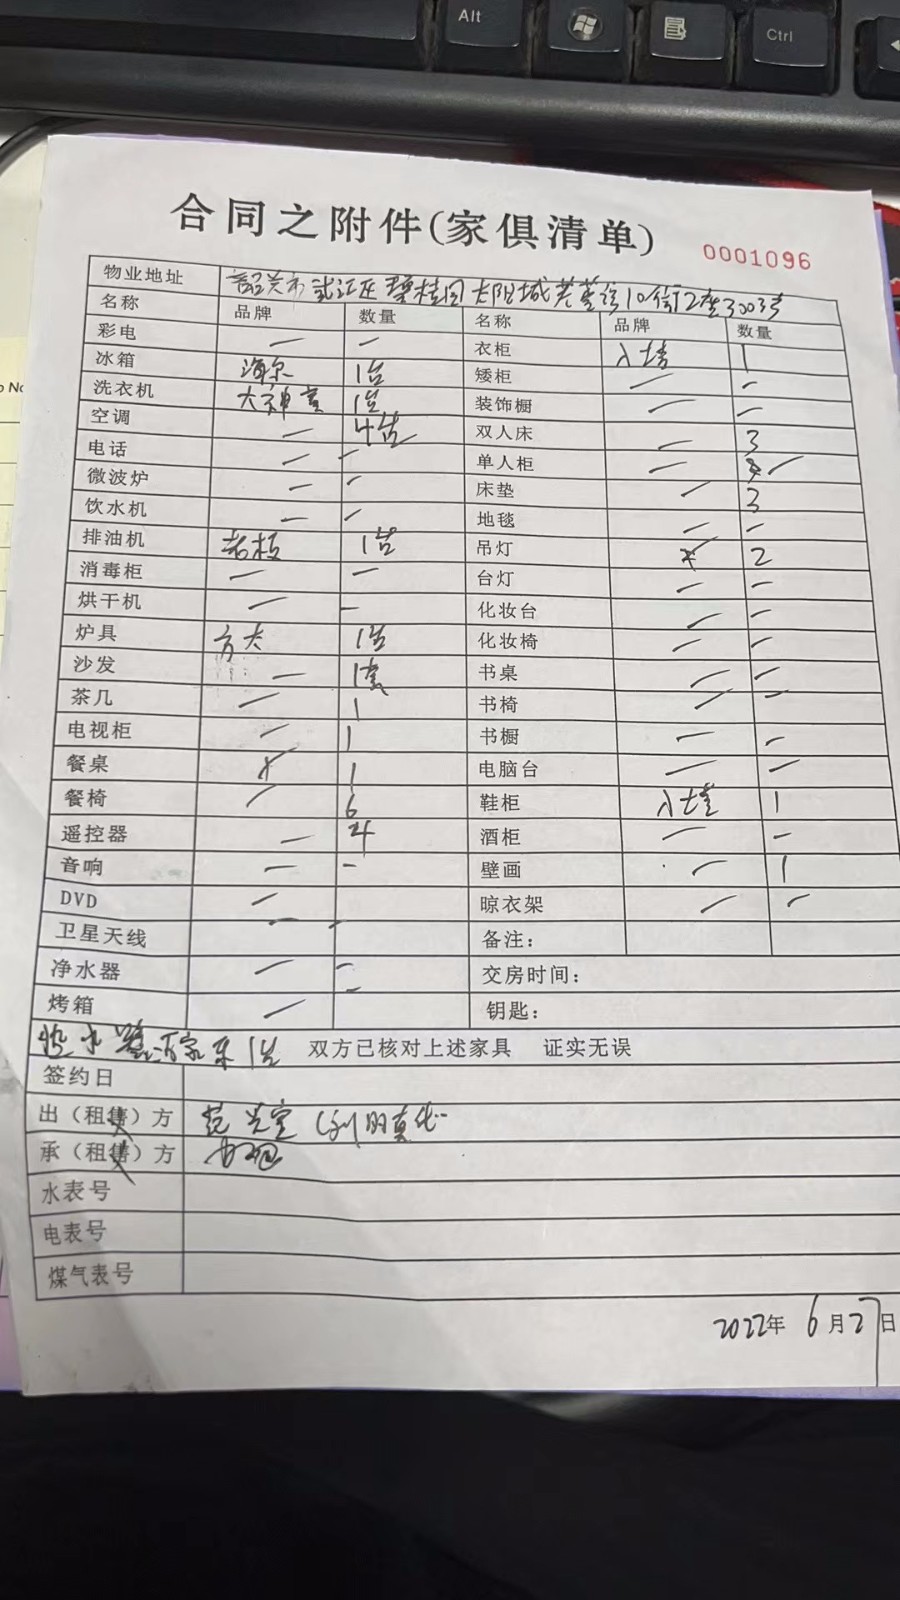 Alt
Ctrl
合同之附件(家俱清单)
0001096
物业地址 韶关市武江区碧桂园太阳城芙蓉 10街12座3003号
名称 品牌 数量 名称 品牌 数量
彩电 — — 衣柜 入墙 1
冰箱 海尔 1台 矮柜 — —
洗衣机 1台 装饰橱 — —
空调 — 4台 双人床 — 3
电话 — — 单人柜 — —
微波炉 — — 床垫 — 3
饮水机 — — 地毯 — —
排油机 老板 1台 吊灯 — 2
消毒柜 — — 台灯 — —
烘干机 — — 化妆台 — —
炉具 方太 1台 化妆椅 — —
沙发 — 1套 书桌 — —
茶几 — 1 书椅 — —
电视柜 — 1 书橱 — —
餐桌 — 1 电脑台 — —
餐椅 — 6 鞋柜 入墙 1
遥控器 — 4 酒柜 — —
音响 — — 壁画 — 1
DVD — 晾衣架 — —
卫星天线 — — 备注：
净水器 — — 交房时间：
烤箱 — — 钥匙：
热水器 1台 双方已核对上述家具 证实无误
签约日
出（租售）方
承（租售）方
水表号
电表号
煤气表号
2022年 6月27日